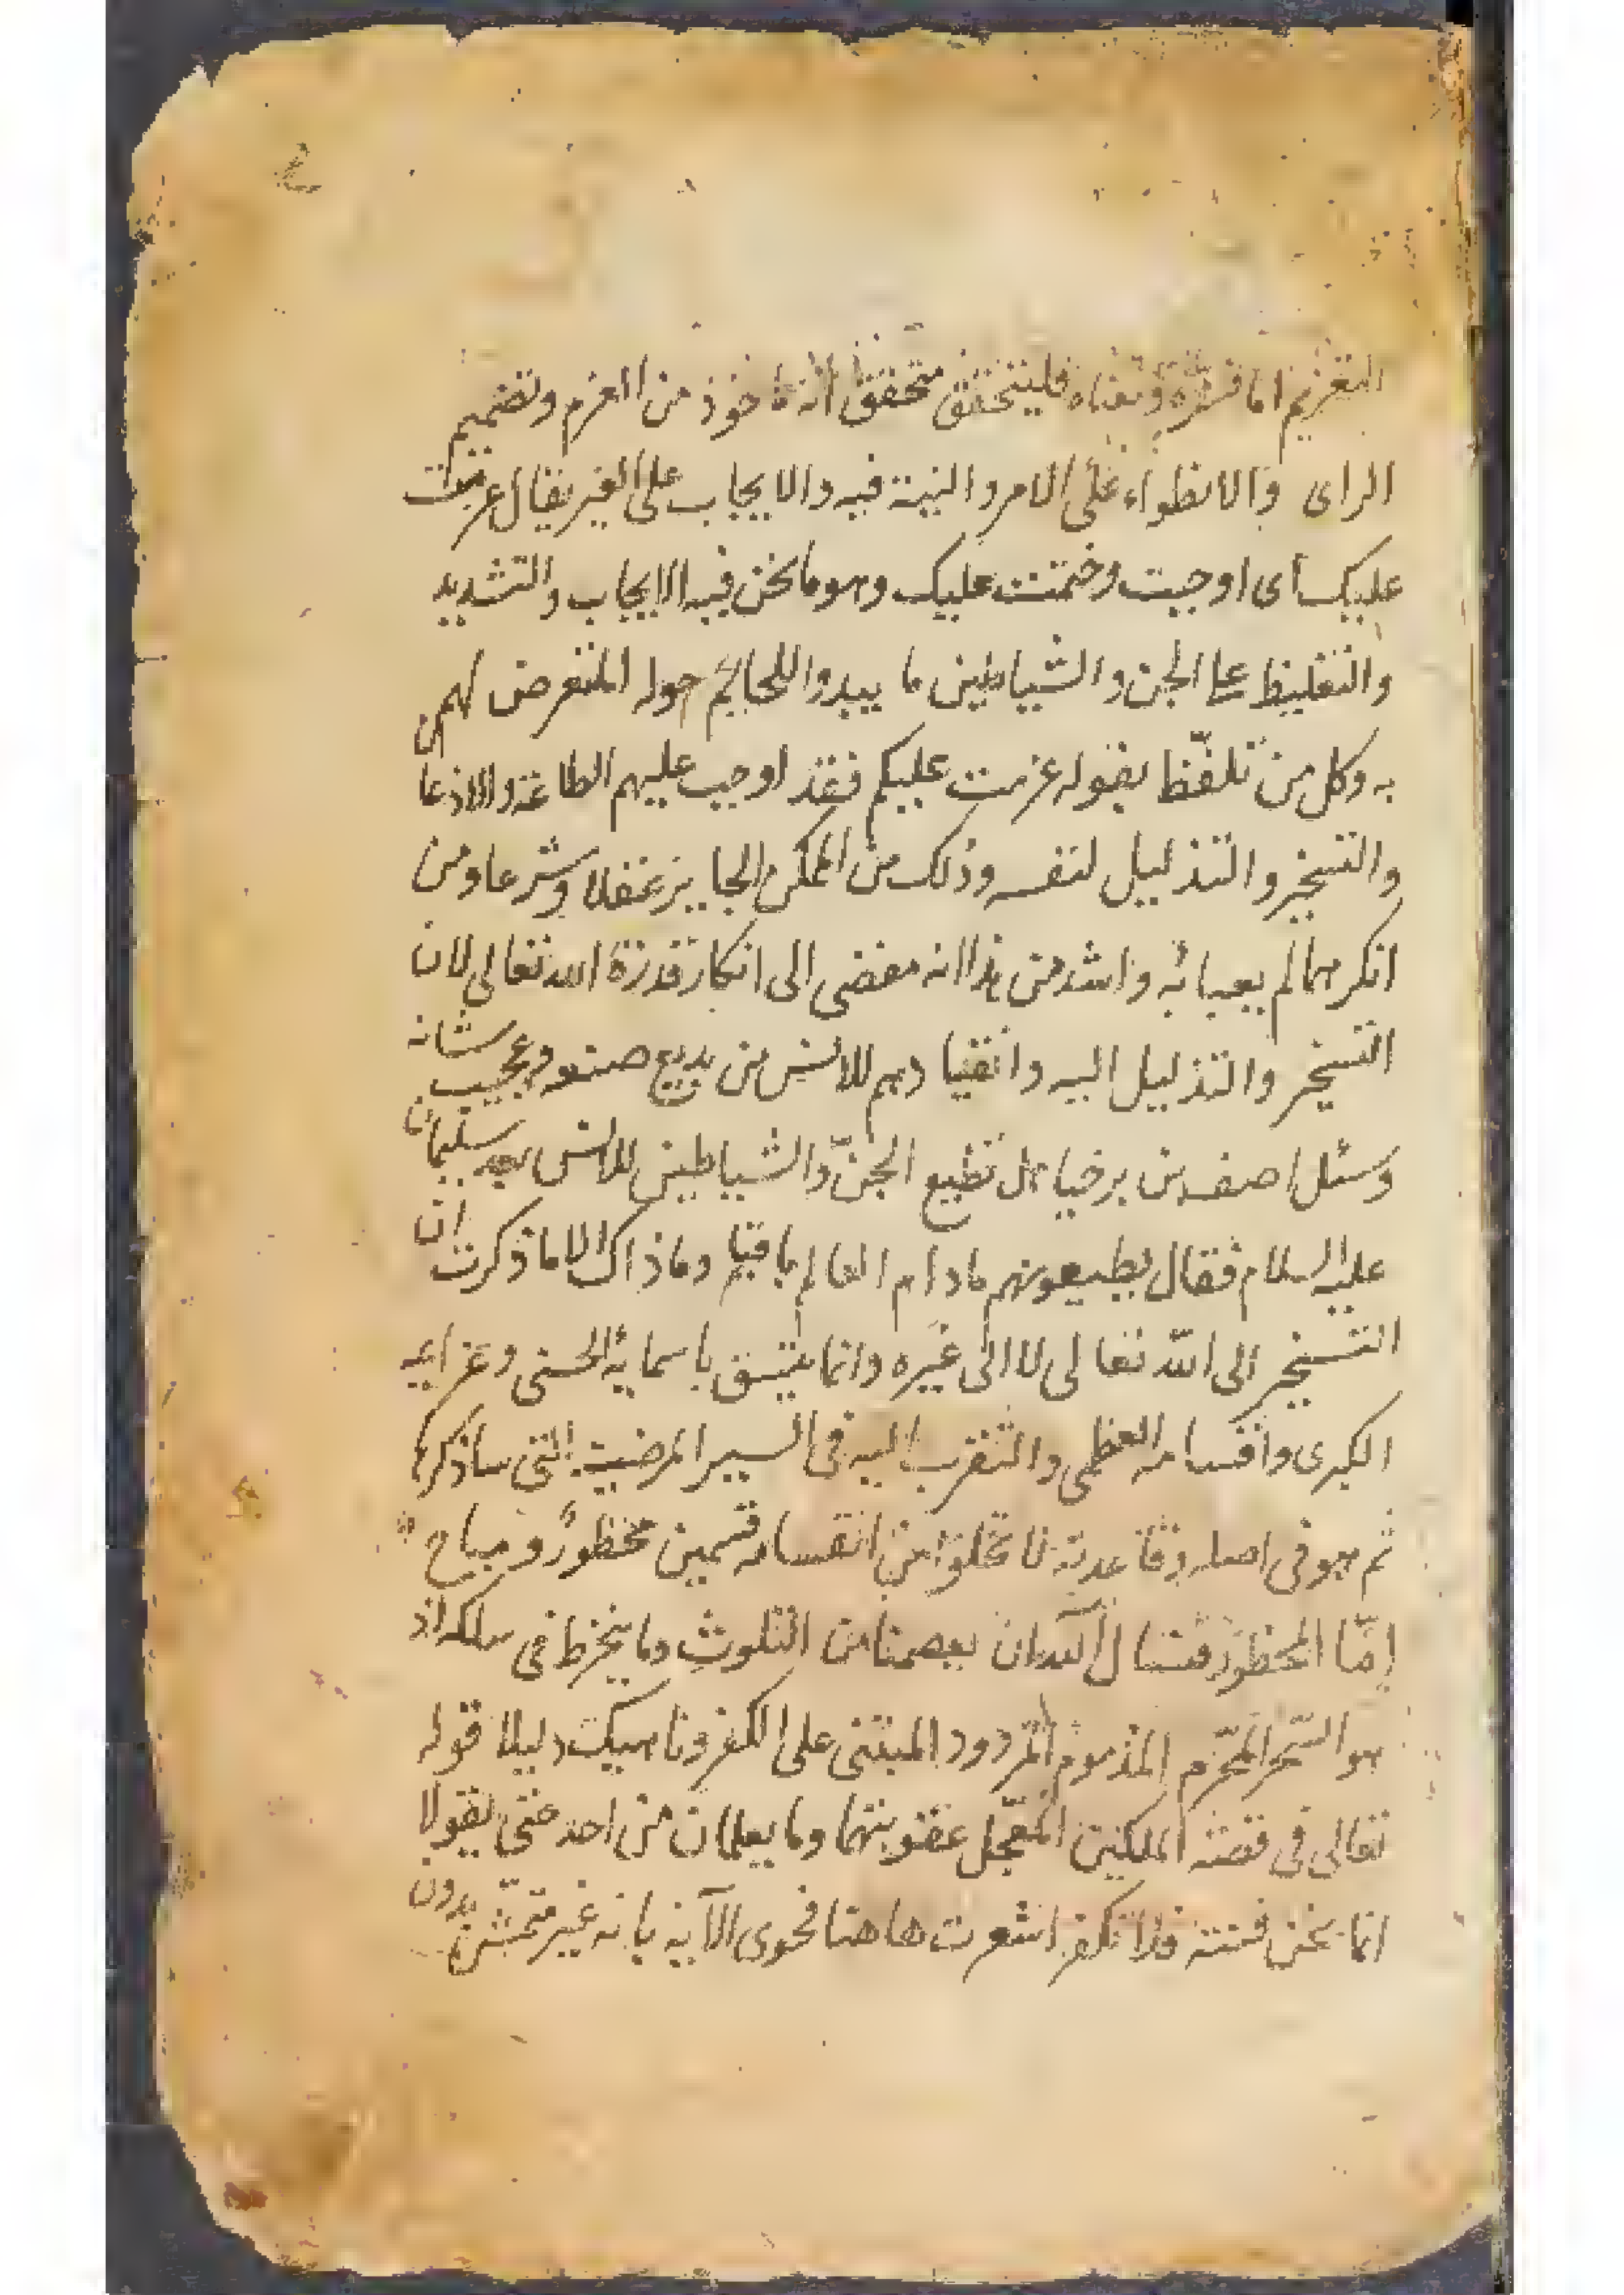 التعزيم اما فسره ومعناه فليتحقق متحقق انه ماخوذ من العزم وتصميم
الراى والانطواء على الامر والنية فيه والايجاب على الغير يقال عزمت
عليك اى اوجبت وحتمت عليك وهو ما نحن فيه الايجاب والتشديد
والتغليظ على الجن والشياطين ما يبدوا للحايم حوله المتعرض لهم
به وكل من تلفظ بقوله عزمت عليكم فقد اوجب عليهم الطاعة والاذعان
والتسخير والتذليل لنفسه وذلك من الممكن الجايز عقلا وشرعا ومن
انكرهما لم يعبا به واشد من هذا انه مفضى الى انكار قدرة الله تعالى لان
التسخير والتذليل اليه وانقيادهم للانس من بديع صنعه وعجيب شانه
وسئل اصف بن برخيا هل تطيع الجن والشياطين للانس بعد سليمان
عليه السلام فقال يطيعونهم مادام العالم باقيا وما ذاك الا ما ذكرت ان
التسخير الى الله تعالى لا الى غيره وانما يتسق باسمايه الحسنى وعزايمه
الكبرى واقسامه العظمى والتقرب اليه فى السير المرضية التى ساذكرها
ثم هو فى اصله وقاعدته لا تخلوا من انقسامه قسمين محظور ومباح
اما المحظور فنسال الله ان يعصمنا من التلوث وما ينخرط فى سلكه اذ
هو السحر المحرم المذموم المردود المبتنى على الكفر وناهيك دليلا قوله
تعالى فى قصة الملكين المعجل عقوبتهما وما يعلمان من احد حتى يقولا
انما نحن فتنة فلا تكفر اشعرت هاهنا فحوى الاية بانه غير متمش بدون